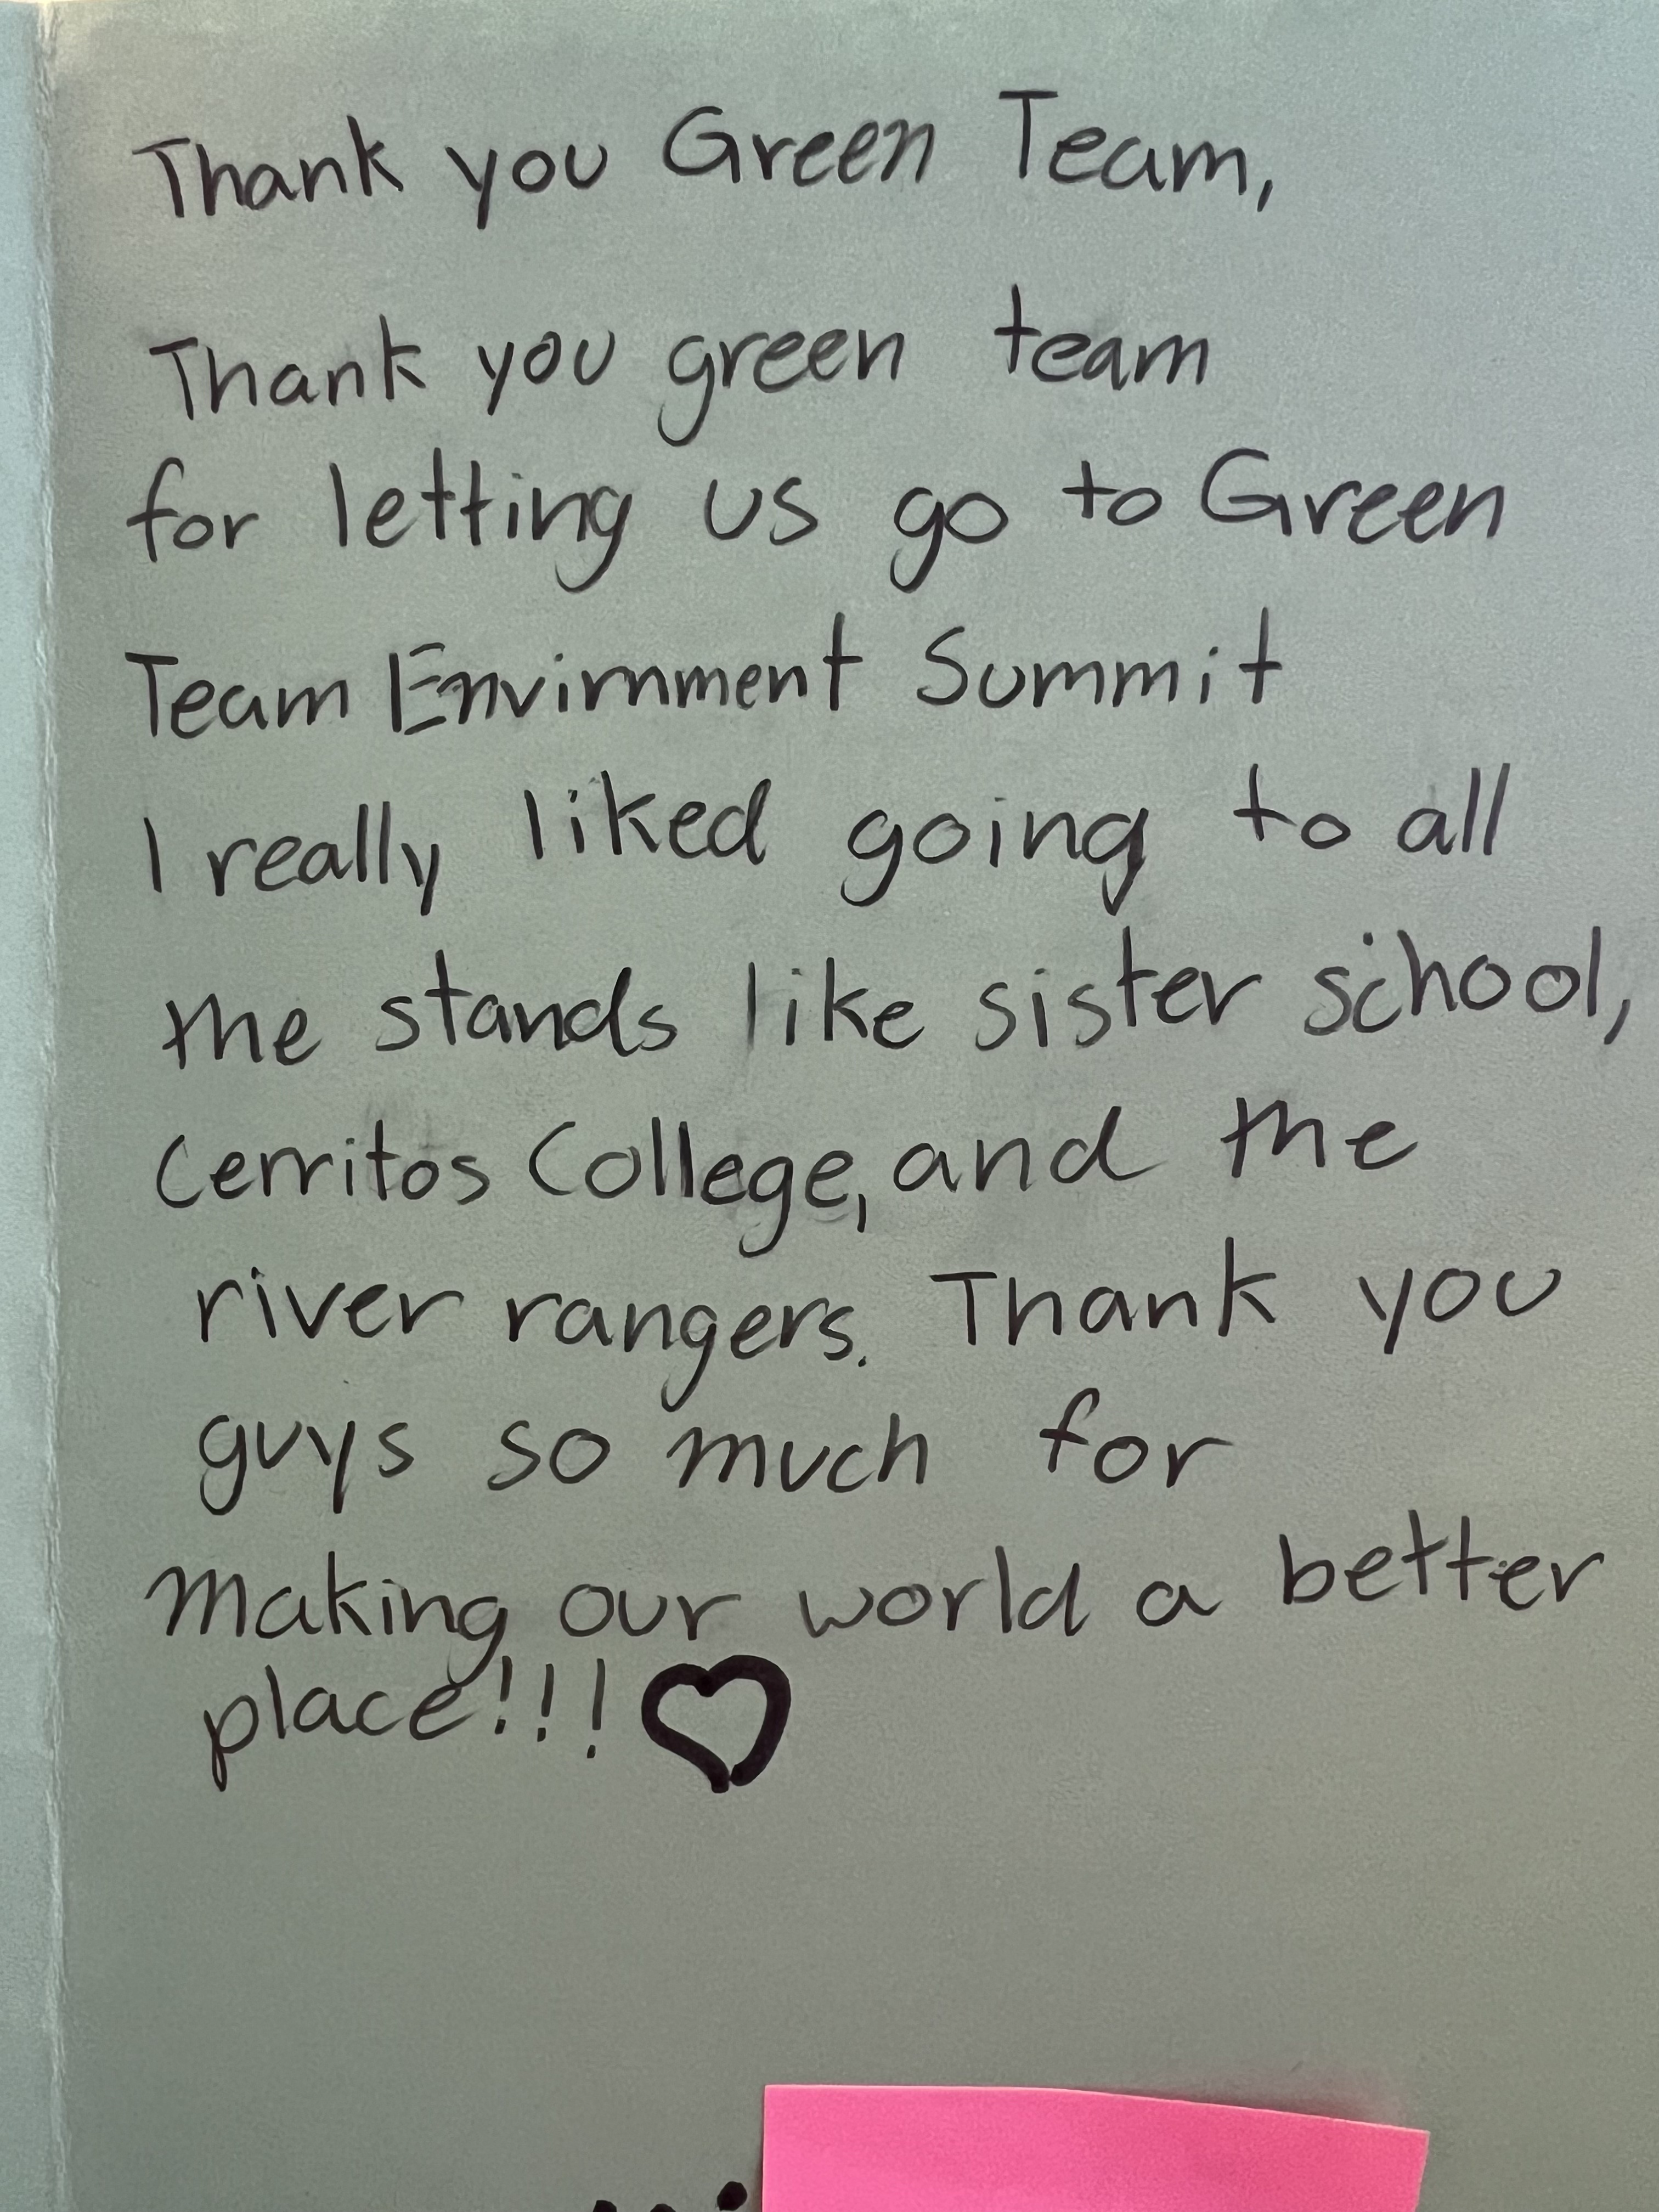 Thank you Green Team,
Thank you green team
for letting us go to Green
Team Envirnment Summit
I really liked going to all
the stands like sister school,
Cerritos College, and the
river rangers. Thank you
guys so much for
making our world a better
place!!!